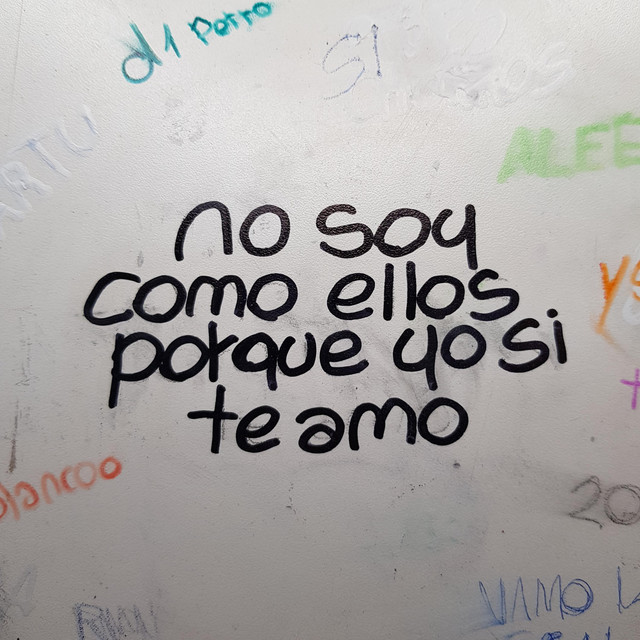 d1 Perro
SI
ALFE
no soy
como ellos
porque yo si
te amo
blancoo
20
VAMO